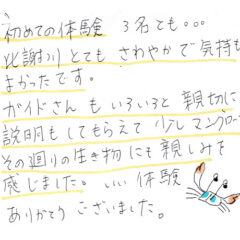 初めての体験 3名でも。。。
比謝川とても さわやかで気持も
よかったです。
ガイドさんもいろいろと親切に
説明もしてもらえて 少しマングロー
その廻りの生き物にも親しみを
感じました。いい体験
ありがとうございました。